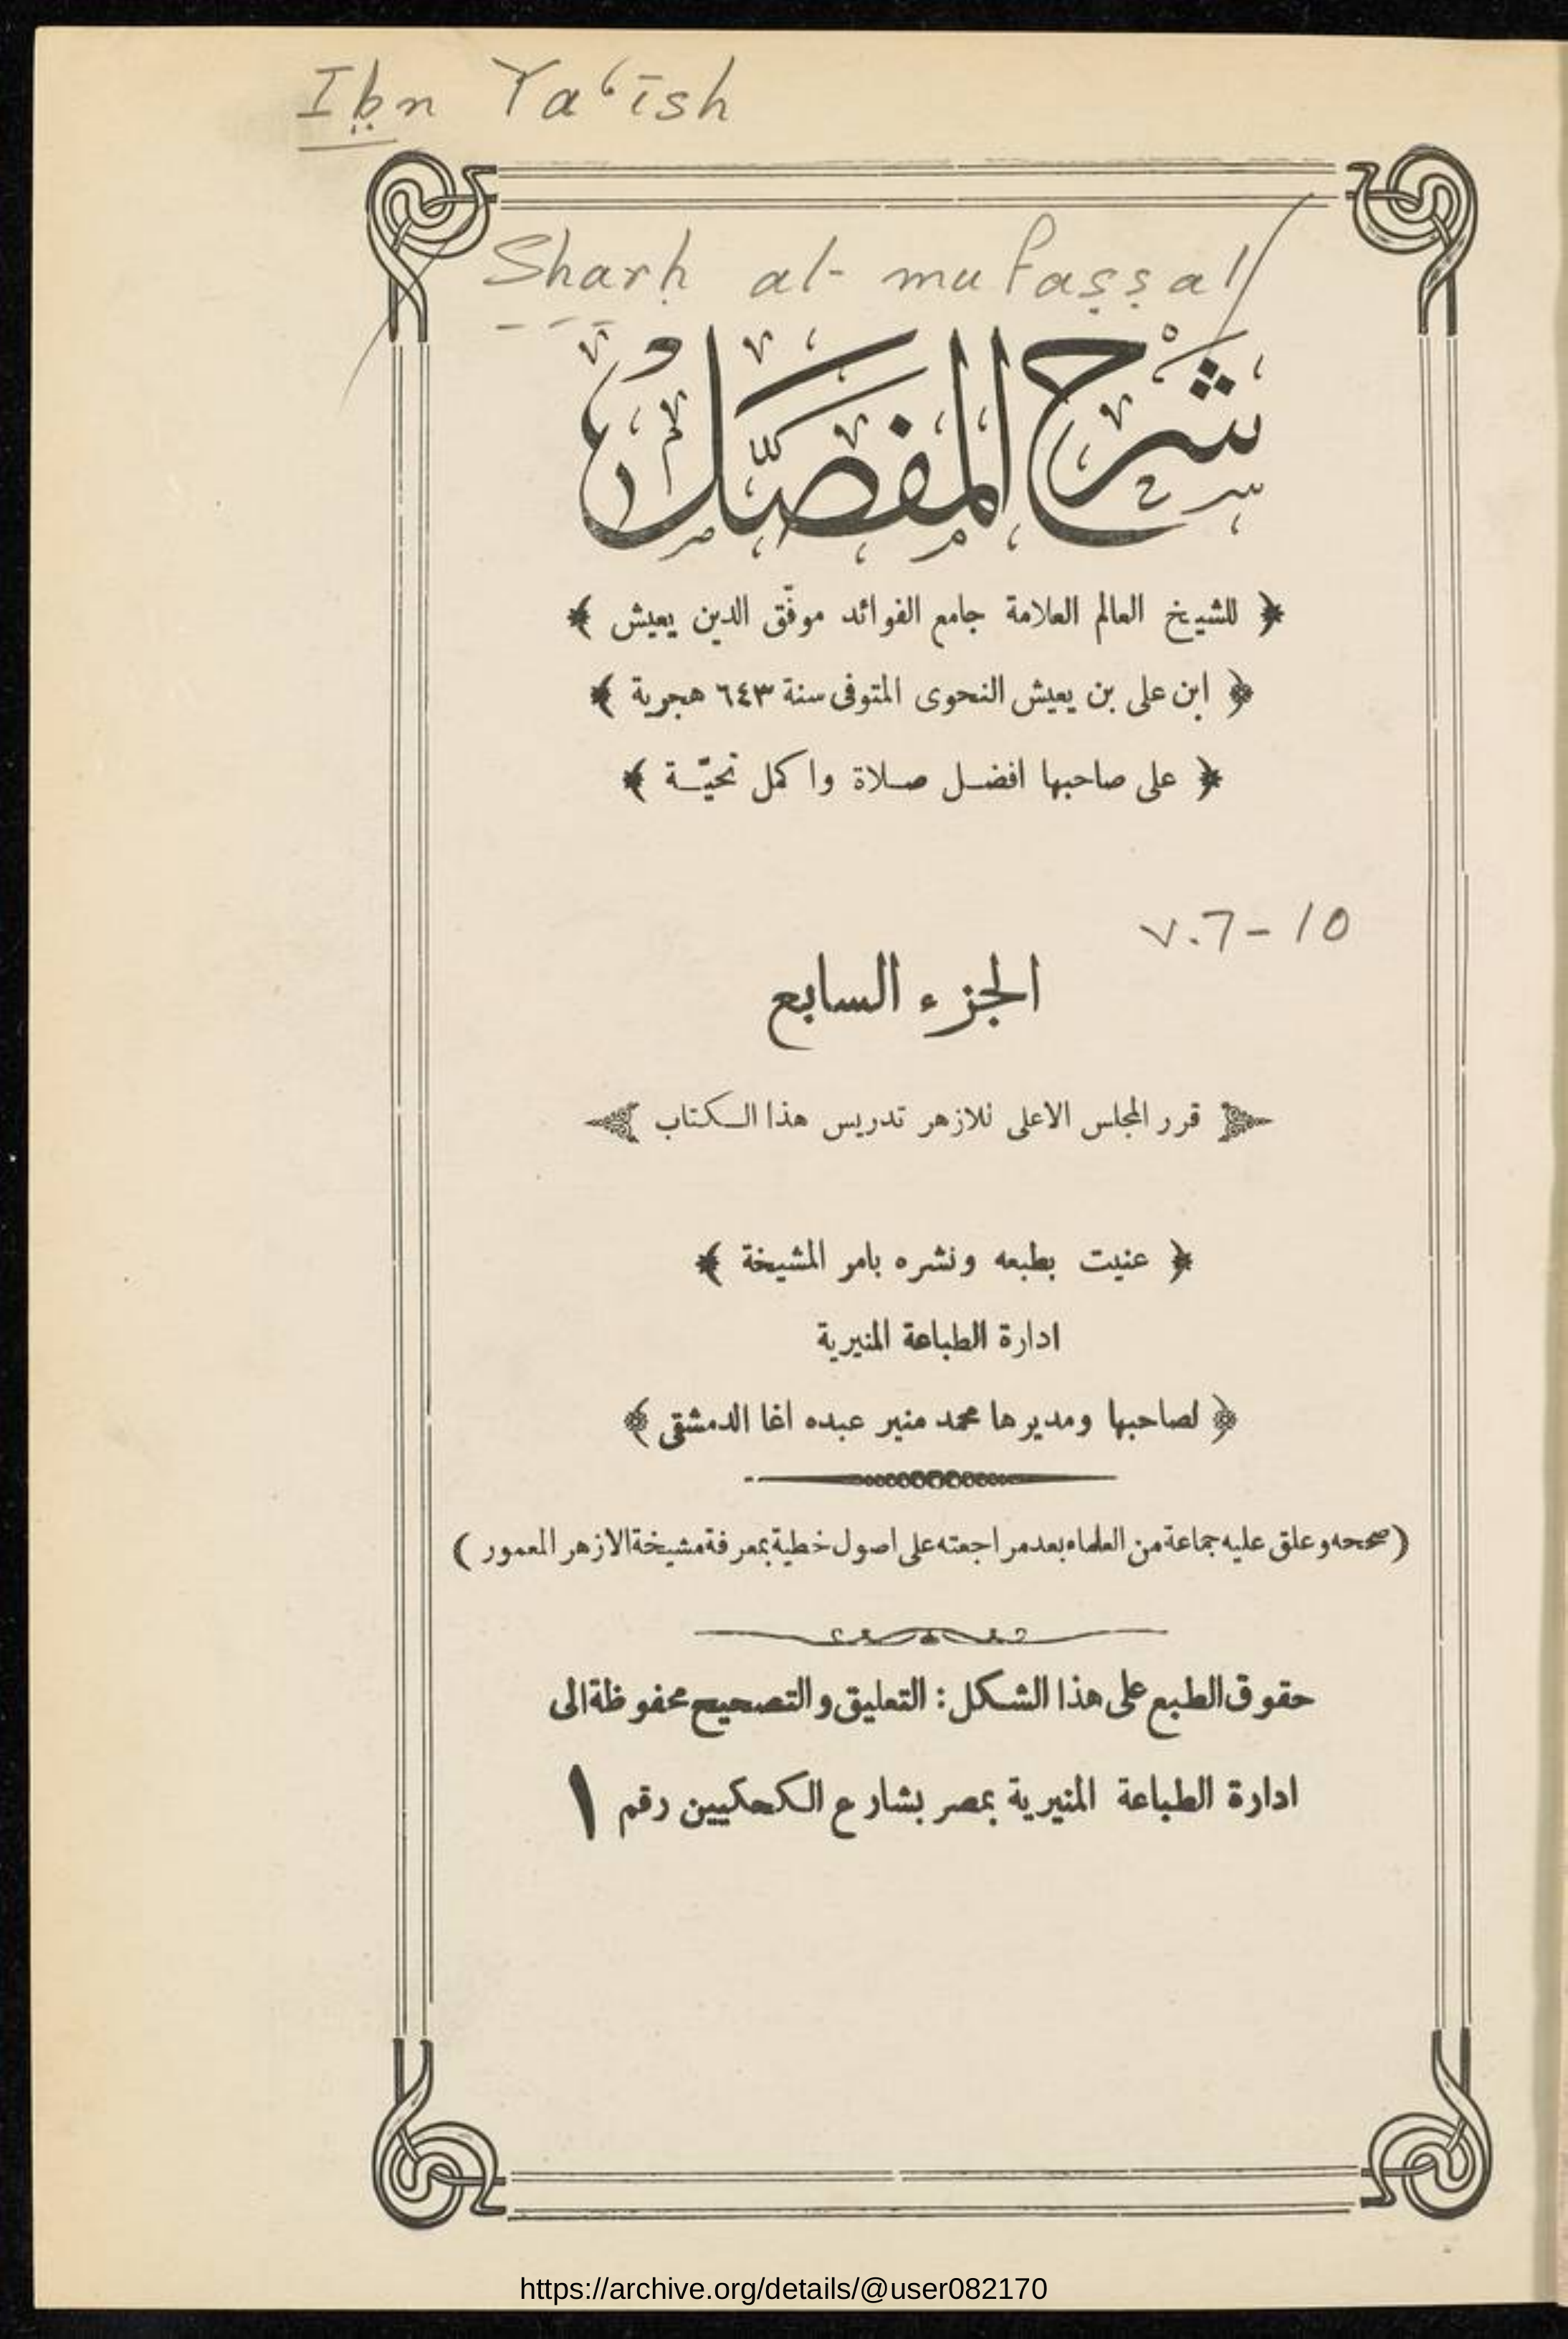 Ibn Ya‘īsh
Sharḥ al-mufaṣṣal
شرح المفصل
﴿ للشيخ العالم العلامة جامع الفوائد موفّق الدين يعيش ﴾
﴿ ابن على بن يعيش النحوى المتوفى سنة ٦٤٣ هجرية ﴾
﴿ على صاحبها افضل صلاة واكمل تحيّة ﴾
v.7-10
الجزء السابع
قرر المجلس الاعلى للازهر تدريس هذا الكتاب
﴿ عنيت بطبعه ونشره بامر المشيخة ﴾
ادارة الطباعة المنيرية
﴿ لصاحبها ومديرها محمد منير عبده اغا الدمشقى ﴾
( صححه وعلق عليه جماعة من العلماء بعد مراجعته على اصول خطية بمعرفة مشيخة الازهر المعمور )
حقوق الطبع على هذا الشكل : التعليق والتصحيح محفوظة الى
ادارة الطباعة المنيرية بمصر بشارع الكحكيين رقم ١
https://archive.org/details/@user082170